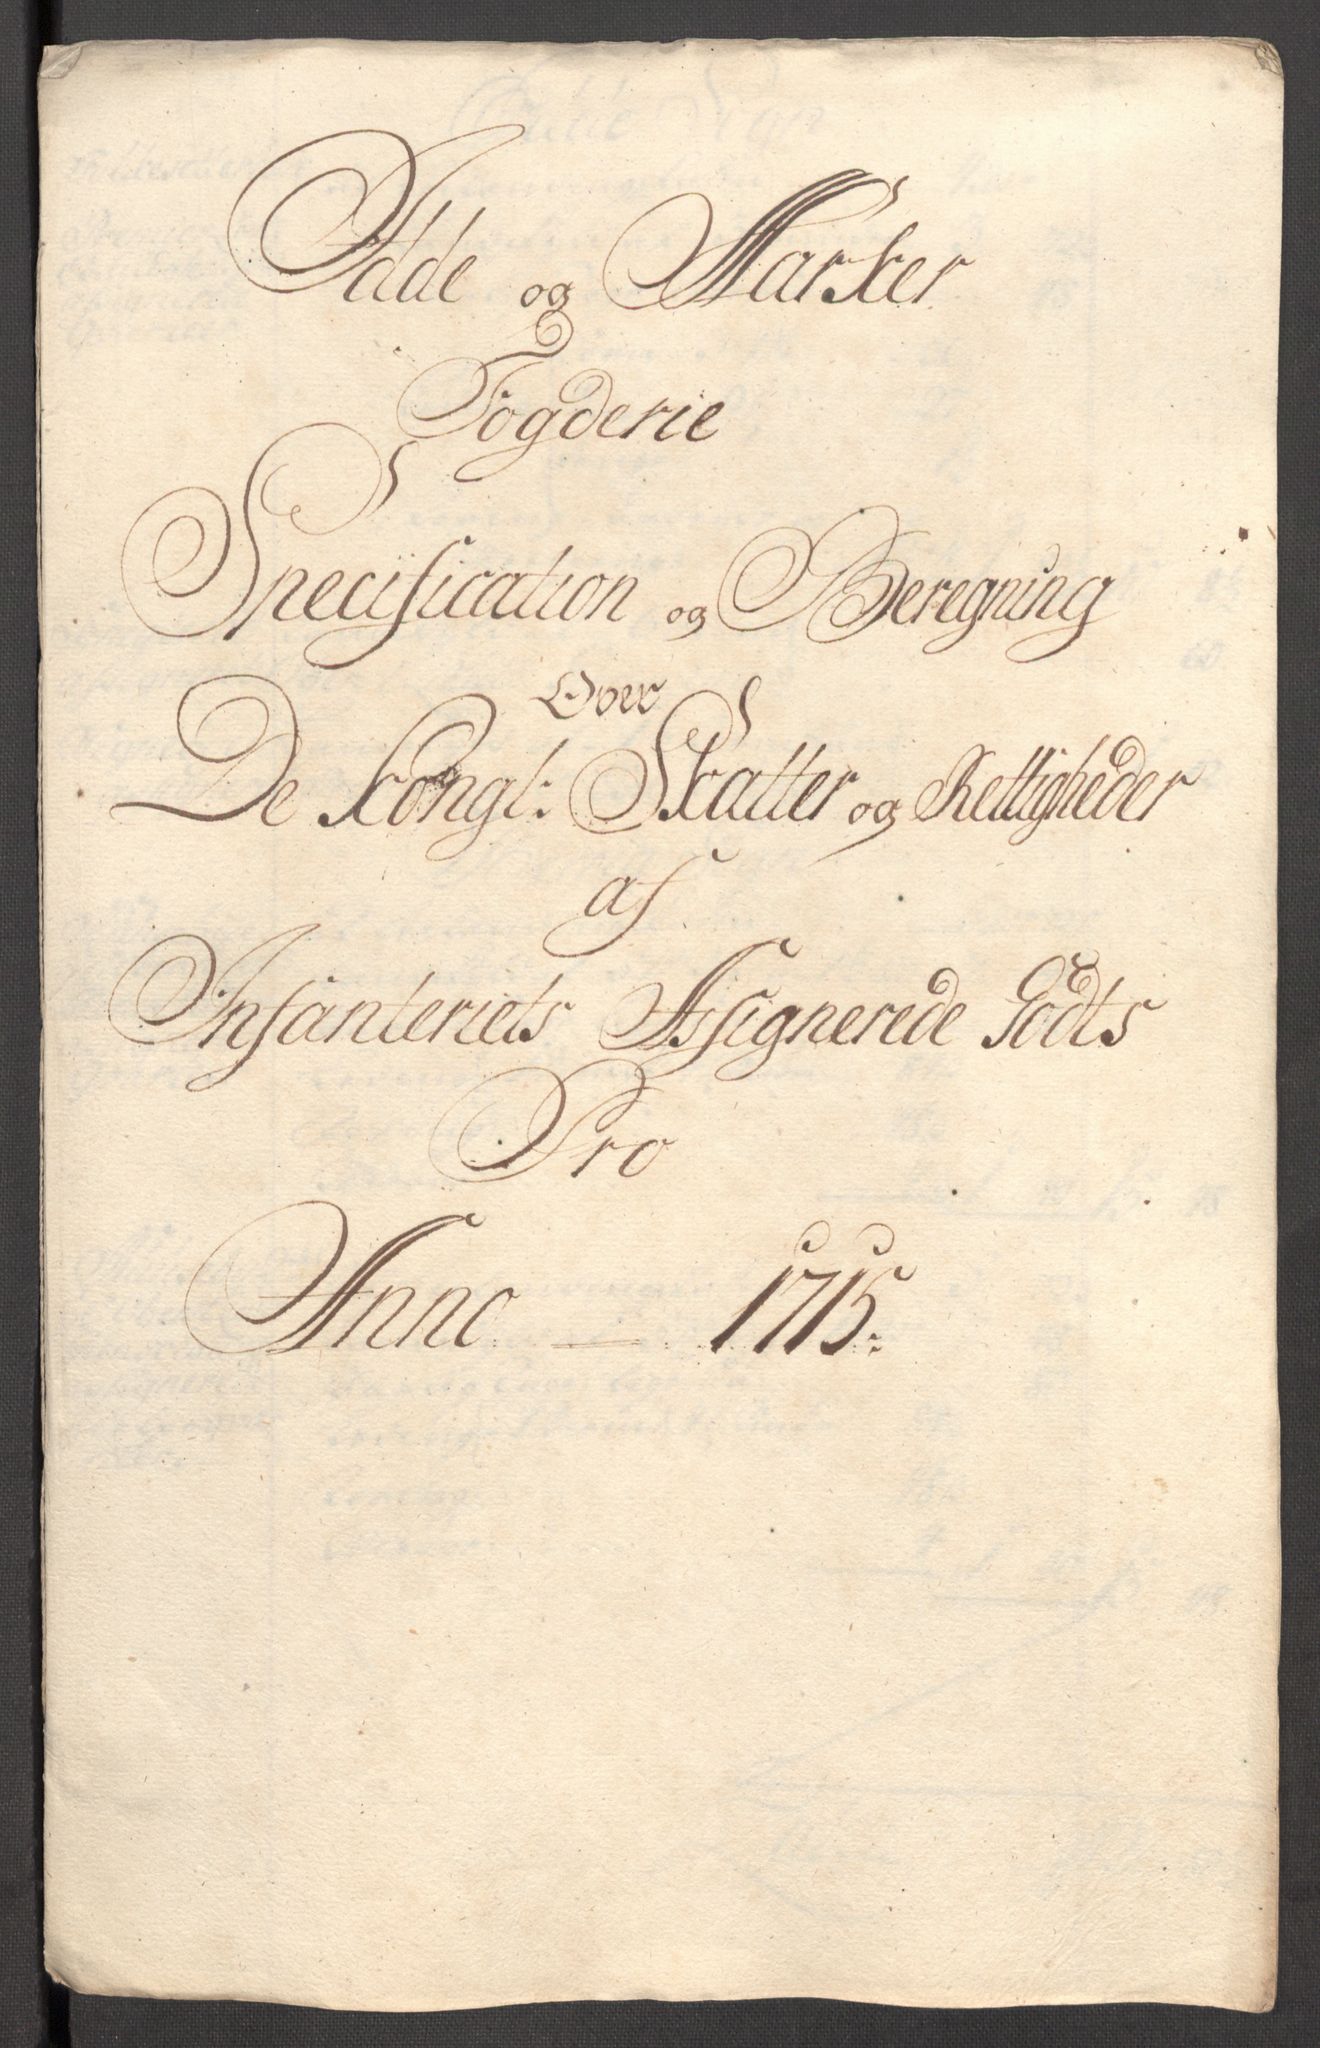 Idde og Marker
Fogderie
Specification og Beregning
Over
De Kongl: Skatter og Rettigheder
af
Infanteriets Assignerede Godts
Pro
Anno — 1715: